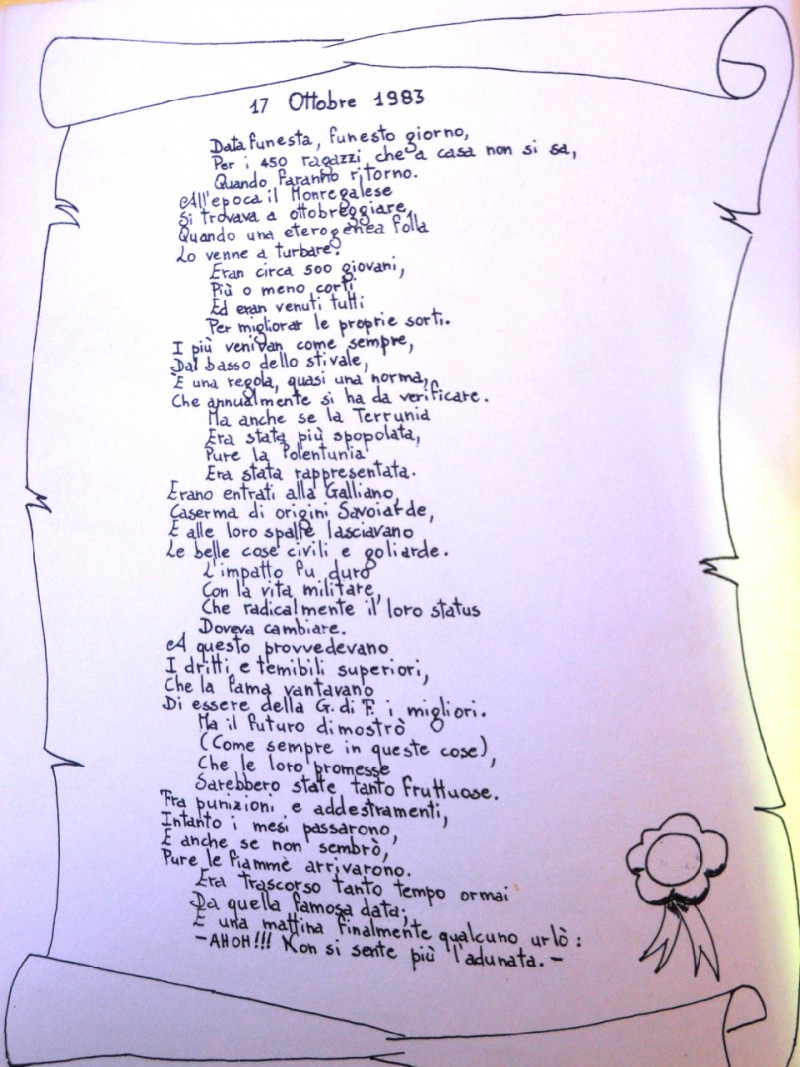 17 Ottobre 1983
Data funesta, funesto giorno,
Per i 450 ragazzi che a casa non si sa,
Quando faranno ritorno.
All'epoca il Monregalese
Si trovava a ottobreggiare,
Quando una eterogenea folla
Lo venne a turbare.
Eran circa 500 giovani,
Più o meno corti
Ed eran venuti tutti
Per migliorar le proprie sorti.
I più venivan come sempre,
Dal basso dello stivale,
È una regola, quasi una norma,
Che annualmente si ha da verificare.
Ma anche se la Terrunia
Era stata più spopolata,
Pure la Polentunia
Era stata rappresentata.
Erano entrati alla Galliano,
Caserma di origini Savoiarde,
E alle loro spalle lasciavano
Le belle cose civili e goliarde.
L'impatto fu duro
Con la vita militare,
Che radicalmente il loro status
Doveva cambiare.
A questo provvedevano
I dritti e temibili superiori,
Che la fama vantavano
Di essere della G. di F. i migliori.
Ma il futuro dimostrò
(Come sempre in queste cose),
Che le loro promesse
Sarebbero state tanto fruttuose.
Fra punizioni e addestramenti,
Intanto i mesi passarono,
E anche se non sembrò,
Pure le fiamme arrivarono.
Era trascorso tanto tempo ormai
Da quella famosa data;
E una mattina finalmente qualcuno urlò :
-AHOH!!! Non si sente più l'adunata. -